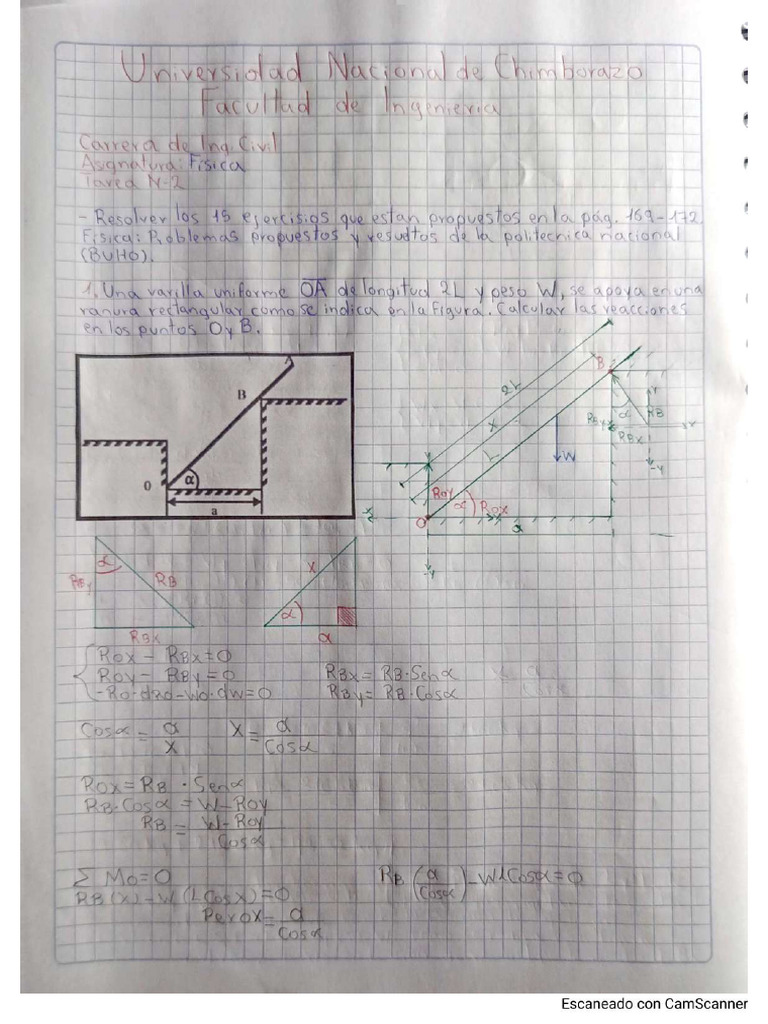 Universidad Nacional de Chimborazo
Facultad de Ingenieria
Carrera de Ing. Civil
Asignatura: Física
Tarea N-2
- Resolver los 15 ejercisios que estan propuestos en la pág. 169-172
Fisica: Problemas propuestos y resueltos de la politecnica nacional
(BUHO).
1. Una varilla uniforme OA de longitud 2L y peso W, se apoya en una
ranura rectangular como se indica en la figura. Calcular las reacciones
en los puntos O y B.
B
O
α
a
B
2L
x
L
W
RBy
α
RB
RBx
-y
ROy
α
ROx
O
a
-y
α
RBy
RB
RBx
x
α
a
ROx - RBx = 0
ROy - RBy = 0
-RO·dRO-WO·dW=0
RBx = RB·Senα
RBy = RB·Cosα
Cosα = a/x
x = a/Cosα
ROx = RB · Senα
RB·Cosα = W - ROy
RB = W - ROy / Cosα
Σ MO = 0
RB (x) - W (L Cosx) = 0
Pero x = a/Cosα
RB (a/Cosα) - WLCosα = 0
Escaneado con CamScanner